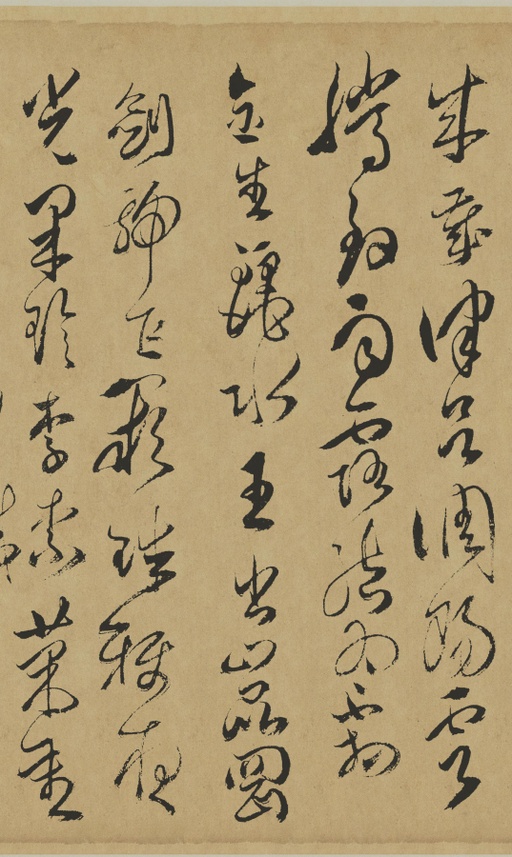 成歲律呂調陽雲
騰致雨露結為霜
金生麗水玉出崑岡
劍號巨闕珠稱夜
光果珍李柰菜重